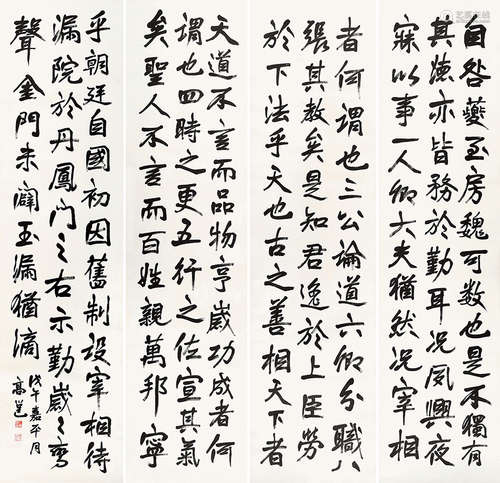 自咎夔至房魏可数也是不獨有
其德亦皆務於勤耳况夙興夜
寐以事一人卿大夫猶然况宰相
者何謂也三公論道六卿分職八
張其教矣是知君逸於上臣勞
於下法乎天也古之善相天下者
天道不言而品物亨歲功成者何
謂也四時之更五行之佐宣其氣
矣聖人不言而百姓親萬邦寧
乎朝廷自國初因舊制設宰相待
漏院於丹鳳門之右示勤歲歲鸞
聲金門未闢玉漏猶滴
戊午嘉平月
高邕